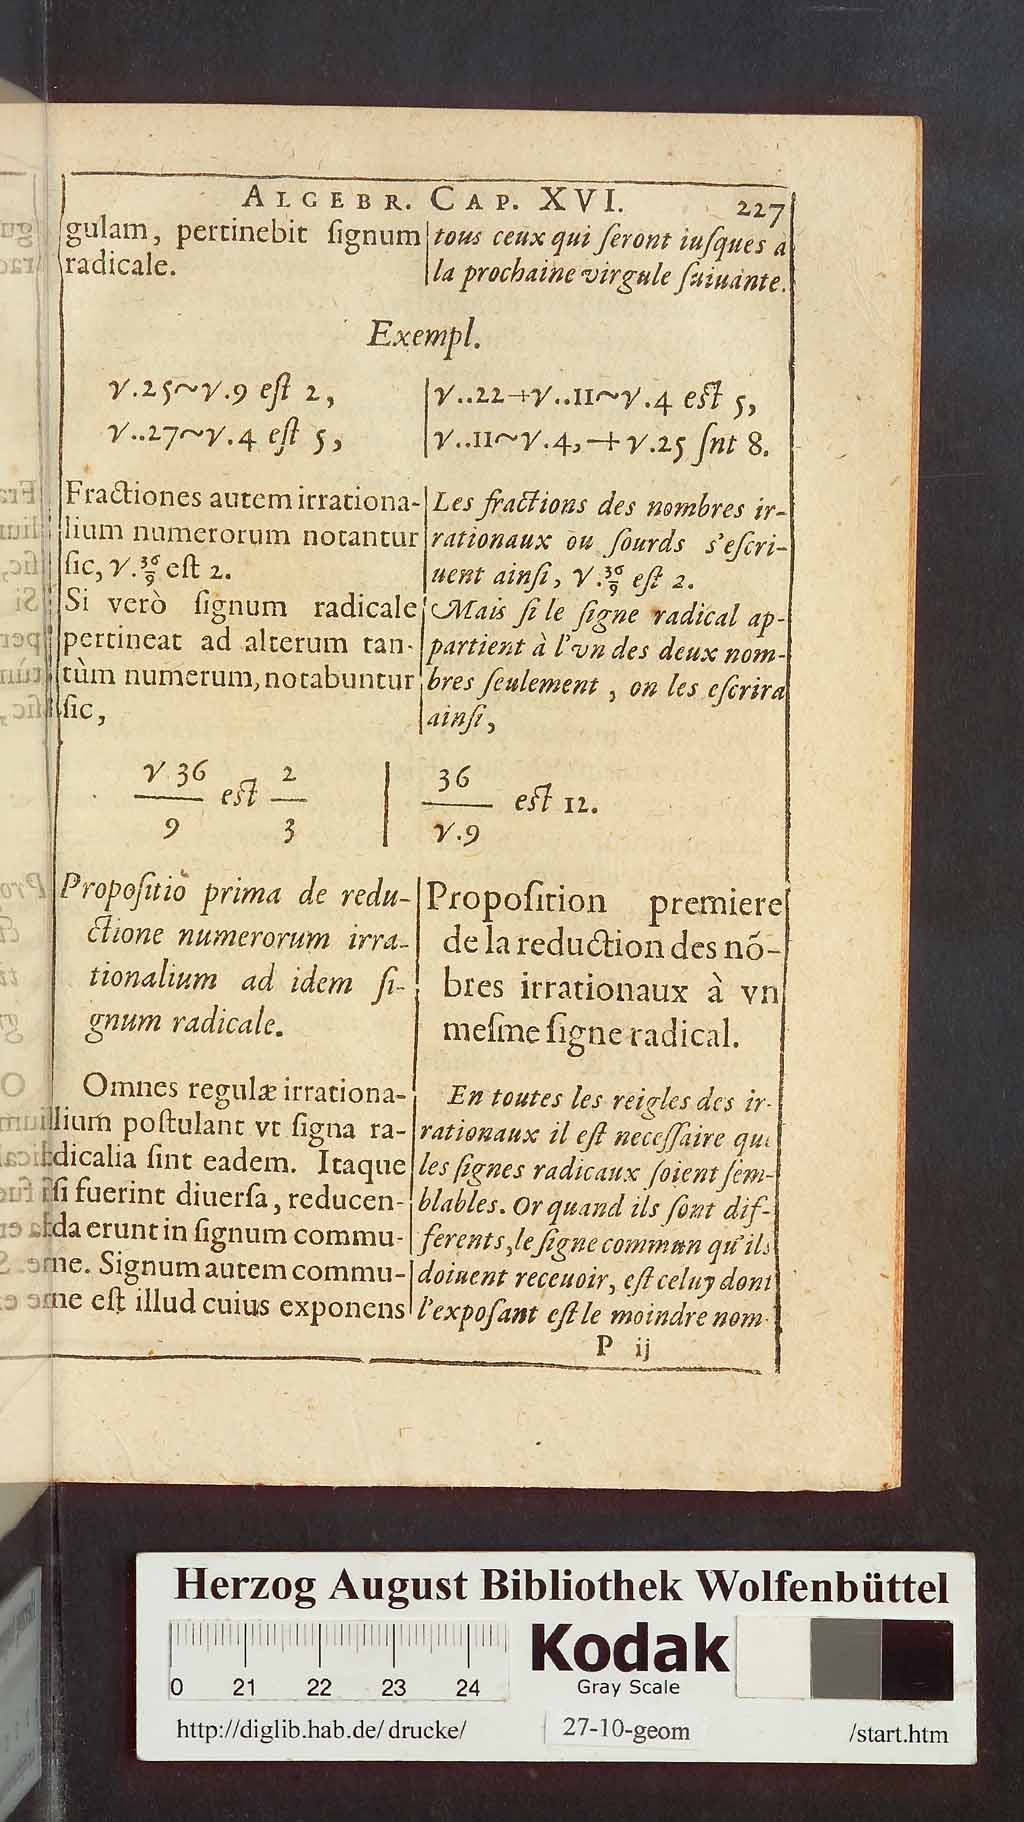 ALGEBR. CAP. XVI. 227
gulam, pertinebit ſignum
radicale.
tous ceux qui ſeront iuſques a
la prochaine virgule ſuiuante.
Exempl.
√.25~√.9 eſt 2,
√..27~√.4 eſt 5,
√..22+√..11~√.4 eſt 5,
√..11~√.4,+√.25 ſnt 8.
Fractiones autem irrationa-
lium numerorum notantur
ſic, √.36/9 eſt 2.
Si verò ſignum radicale
pertineat ad alterum tan-
tùm numerum, notabuntur
ſic,
Les fractions des nombres ir-
rationaux ou ſourds s'eſcri-
uent ainſi, √.36/9 eſt 2.
Mais ſi le ſigne radical ap-
partient à l'vn des deux nom-
bres ſeulement, on les eſcrira
ainſi,
√36/9 eſt 2/3
36/√.9 eſt 12.
Propoſitio prima de redu-
ctione numerorum irra-
tionalium ad idem ſi-
gnum radicale.
Propoſition premiere
de la reduction des nõ-
bres irrationaux à vn
meſme ſigne radical.
Omnes regulæ irrationa-
lium poſtulant vt ſigna ra-
dicalia ſint eadem. Itaque
ſi fuerint diuerſa, reducen-
da erunt in ſignum commu-
ne. Signum autem commu-
ne eſt illud cuius exponens
En toutes les reigles des ir-
rationaux il eſt neceſſaire que
les ſignes radicaux ſoient ſem-
blables. Or quand ils ſont dif-
ferents, le ſigne commun qu'ils
doiuent receuoir, eſt celuy dont
l'expoſant eſt le moindre nom-
P ij
Herzog August Bibliothek Wolfenbüttel
0 21 22 23 24
Kodak
Gray Scale
http://diglib.hab.de/drucke/ 27-10-geom /start.htm